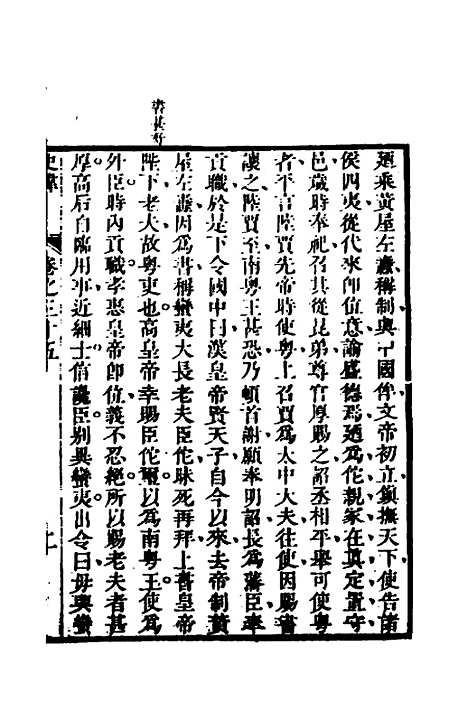 廼乘黃屋左纛稱制與中國侔文帝初立鎮撫天下使告諸
侯四夷從代來卽位意諭盛德焉廼爲佗親家在眞定置守
邑歲時奉祀召其從昆弟尊官厚賜之詔丞相平舉可使粤
者平言陸賈先帝時使粤上召賈爲太中大夫往使因賜書
讓之陸賈至南粤王甚恐乃頓首謝願奉明詔長爲藩臣奉
貢職於是下令國中曰漢皇帝賢天子自今以來去帝制黃
屋左纛因爲書稱蠻夷大長老夫臣佗昧死再拜上書皇帝
陛下老夫故粤吏也高皇帝幸賜臣佗璽以爲南粤王使爲
外臣時內貢職孝惠皇帝卽位義不忍絕所以賜老夫者甚
厚高后自臨用事近細士信讒臣別異蠻夷出令曰毋與蠻
史緯
卷之三十五
書甚好